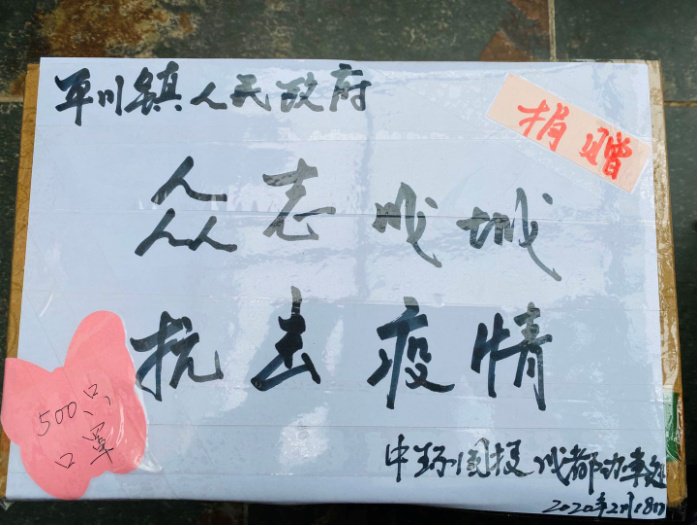 平川镇人民政府
捐赠
众志成城
抗击疫情
500只
口罩
中环国投成都办事处
2020年2月18日